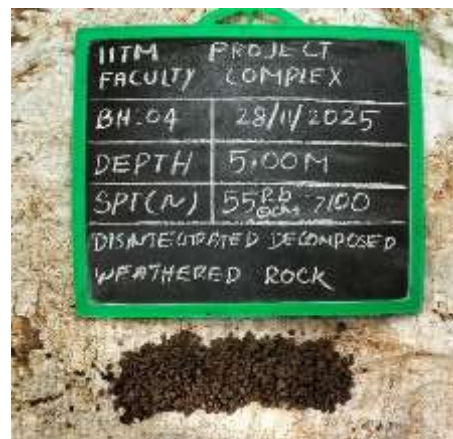 IITM PROJECT
FACULTY COMPLEX
BH-04 28/11/2025
DEPTH 5.00M
SPT(N) 55 7100
DISINTEGRATED DECOMPOSED
WEATHERED ROCK